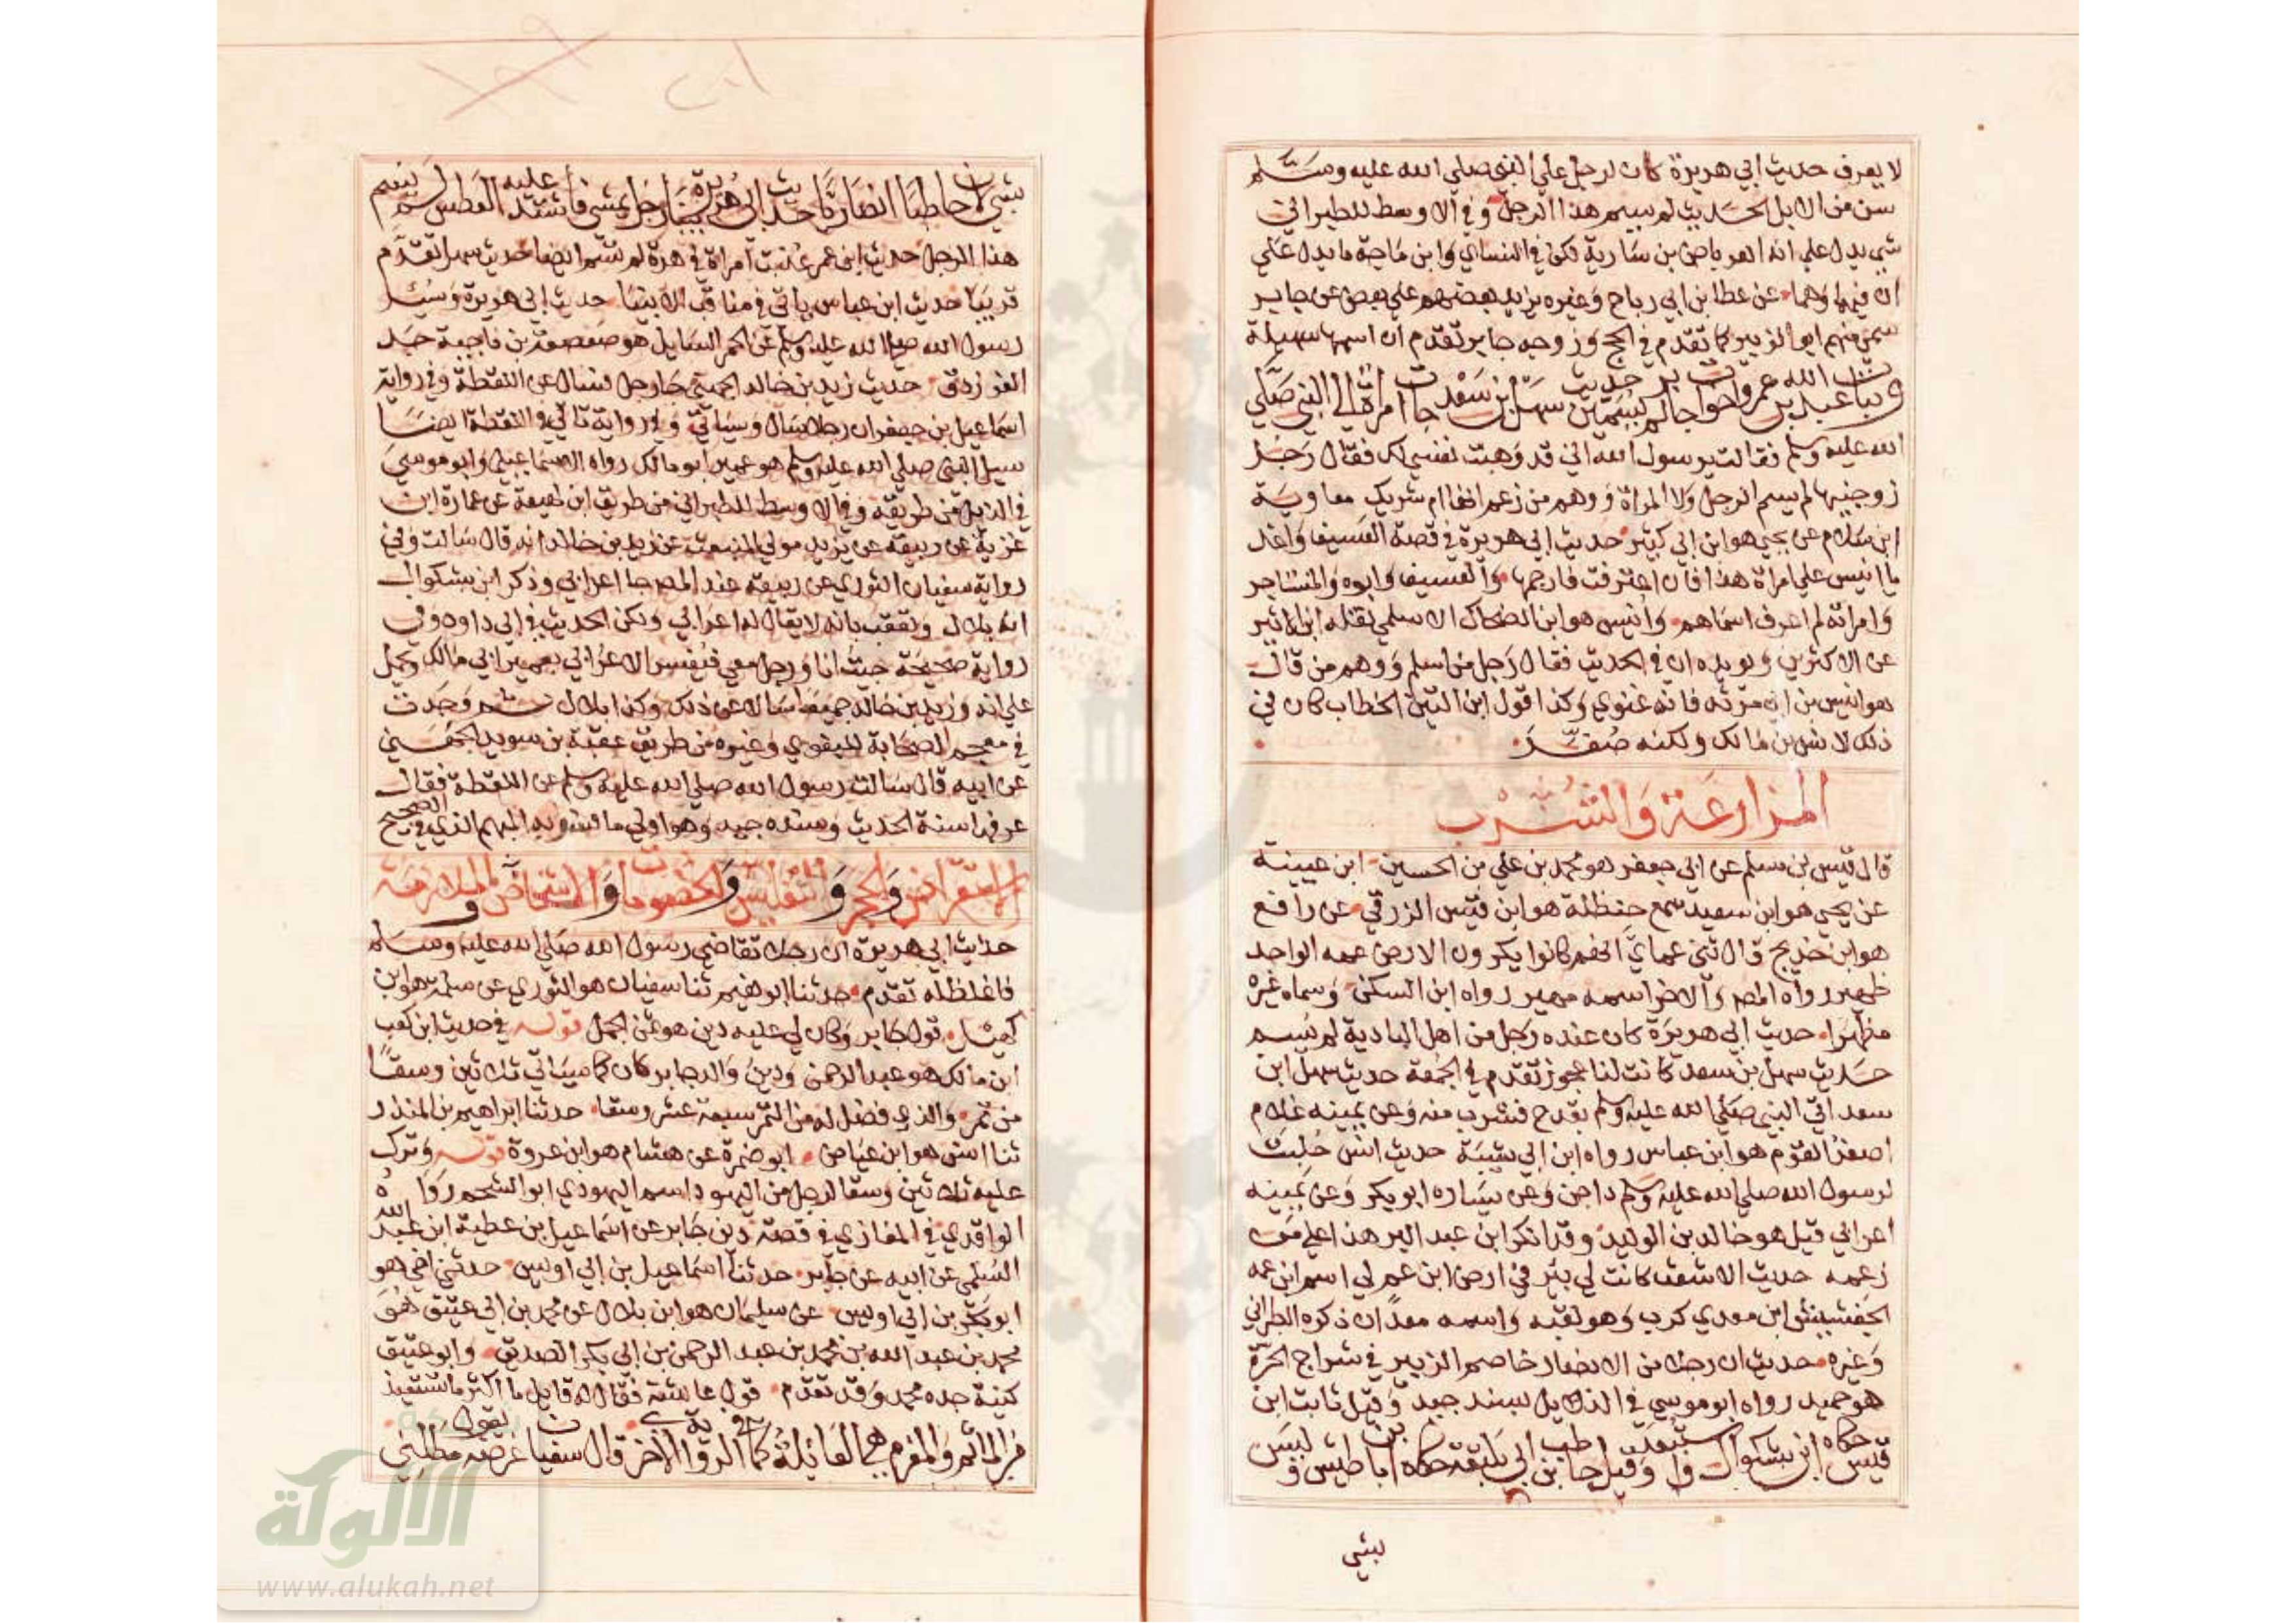 لا يعرف حديث ابي هريرة كان لرجل علي النبي صلي الله عليه وسلم
سن من الابل الحديث لم يسم هذا الرجل وفي الاوسط للطبراني
شي يدل علي انه العرباض بن سارية لكن في النساي وابن ماجة ما يدل علي
ان فيها وهما عن عطا بن ابي رباح وغيره يزيد بعضهم علي بعض عن جابر
سمي منهم ابو الزبير كما تقدم في الحج وزوجه جابر تقدم ان اسمها سهيلة
وبنات عبد الله بن عمرو اخوات جابر لم يسمين حديث سهل بن سعد جات امراة الي النبي صلي
الله عليه وسلم فقالت يرسول الله اني قد وهبت نفسي لك فقال رجل
زوجنيها لم يسم الرجل ولا المراة ووهم من زعم انها ام شريك معاوية
ابن سلام عن يحيي هو ابن ابي كثير حديث ابي هريرة في قصة العسيف واغد
يا انيس علي امراة هذا فان اعترفت فارجمها والعسيف وابوه والمستاجر
وامراته لم اعرف اسماهم وانيس هو ابن الضحاك الاسلمي نقله ابن الاثير
عن الاكثرين ويويده ان في الحديث فقال رجل من اسلم ووهم من قال
هو انيس بن ابي مرثد فانه غنوي وكذا قول ابن التين الخطاب كان في
ذلك لانس بن مالك ولكنه صغر
المزارعة والشرب
قال قيس بن مسلم عن ابي جعفر هو محمد بن علي بن الحسين ابن عيينة
عن يحيي هو ابن سعيد سمع حنظلة هو ابن قيس الزرقي عن رافع
هو ابن خديج قال ثني عماي انهم كانوا يكرون الارض عمه الواحد
ظهير رواه المص والاخر اسمه مهير رواه ابن السكن وسماه غيره
مظهرا حديث ابي هريرة كان عنده رجل من اهل البادية لم يسم
حديث سهل بن سعد كانت لنا عجوز تقدم في الجمعة حديث سهل ابن
سعد اتي النبي صلي الله عليه وسلم بقدح فشرب منه وعن يمينه غلام
اصغر القوم هو ابن عباس رواه ابن ابي شيبة حديث انس حلبت
لرسول الله صلي الله عليه وسلم داجن وعن يساره ابو بكر وعن يمينه
اعرابي قيل هو خالد بن الوليد وقد انكر ابن عبد البر هذا علي من
زعمه حديث الاشعث كانت لي بئر في ارض ابن عم لي اسم ابن عمه
الجفشيش ابن معدي كرب وهو لقبه واسمه معدان ذكره الطبراني
وغيره حديث ان رجلا من الانصار خاصم الزبير في شراج الحرة
هو حميد رواه ابو موسي في الذيل بسند جيد وقيل ثابت ابن
قيس حكاه ابن بشكوال واستبعد وقيل حاطب بن ابي بلتعة حكاه ابن باطيش وليس
بشي
بشي لان حاطبا ليس انصاريا حديث ابي هريرة بينا رجل يمشي فاشتد عليه العطش لم يسم
هذا الرجل حديث ابن عمر عذبت امراة في هرة لم تسم ايضا حديث سهل تقدم
قريبا حديث ابن عباس ياتي في مناقب الانبيا حديث ابي هريرة وسئل
رسول الله صلي الله عليه وسلم عن الحمر السايل هو صعصعة بن ناجية جد
الفرزدق حديث زيد بن خالد الجهني جا رجل فسال عن اللقطة وفي رواية
اسماعيل بن جعفر ان رجلا سال وسياتي وفي رواية تاتي في اللقطة ايضا
سيل النبي صلي الله عليه وسلم هو عمير ابو مالك رواه الاسماعيلي وابو موسي
في الذيل من طريقه وفي الاوسط للطبراني من طريق ابن لهيعة عن عمارة ابن
غزية عن ربيعة عن يزيد مولي المنبعث عن زيد بن خالد انه قال سالت وفي
رواية سفيان الثوري عن ربيعة عند المص جا اعرابي وذكر ابن بشكوال
انه بلال وتعقب بانه لا يقال له اعرابي ولكن الحديث في ابي داود وفي
رواية صحيحة جيت انا ورجل معي فيفسر الاعرابي بعمير ابي مالك ويحمل
علي انه وزيد بن خالد جميعا سالا عن ذلك وكذا بلال ثم وجدت
في معجم الصحابة للبغوي وغيره من طريق عقبة بن سويد الجهني
عن ابيه قال سالت رسول الله صلي الله عليه وسلم عن اللقطة فقال
عرفها سنة الحديث وسنده جيد وهو اولي ما فسر به المبهم الذي في الصحيح
الاستقراض والحجر والتفليس والخصومات والاشخاص والملازمة
حديث ابي هريرة ان رجلا تقاضي رسول الله صلي الله عليه وسلم
فاغلظ له تقدم حدثنا ابو نعيم ثنا سفيان هو الثوري عن سلمة هو ابن
كهيل قول جابر وكان لي عليه دين هو ثمن الجمل قوله في حديث ابن كعب
ابن مالك هو عبد الرحمن ودين والد جابر كان كما سياتي ثلاثين وسقا
من تمر والذي فضل له من التمر سبعة عشر وسقا حدثنا ابراهيم بن المنذر
ثنا انس هو ابن عياض ابو ضمرة عن هشام هو ابن عروة قوله وترك
عليه ثلاثين وسقا لرجل من اليهود اسم اليهودي ابو الشحم رواه
الواقدي في المغازي في قصة دين جابر عن اسماعيل بن عطية ابن عبد الله
السلمي عن ابيه عن جابر حدثنا اسماعيل بن ابي اويس حدثني اخي هو
ابو بكر بن ابي اويس عن سليمان هو ابن بلال عن محمد بن ابي عتيق هو
محمد بن عبد الله بن محمد بن عبد الرحمن بن ابي بكر الصديق وابو عتيق
كنية جده محمد وقد تقدم قول عايشة فقال له قايل ما اكثر ما تستعيذ
من الماثم والمغرم هي القايلة كما في الرواية الاخري قال سفيان عرضه يقول مطلني
الألوكة
www.alukah.net